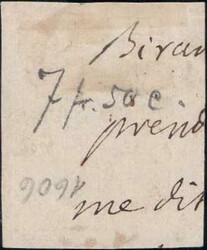 Biran
7 fr. 50 c.
prend
4606
me dit